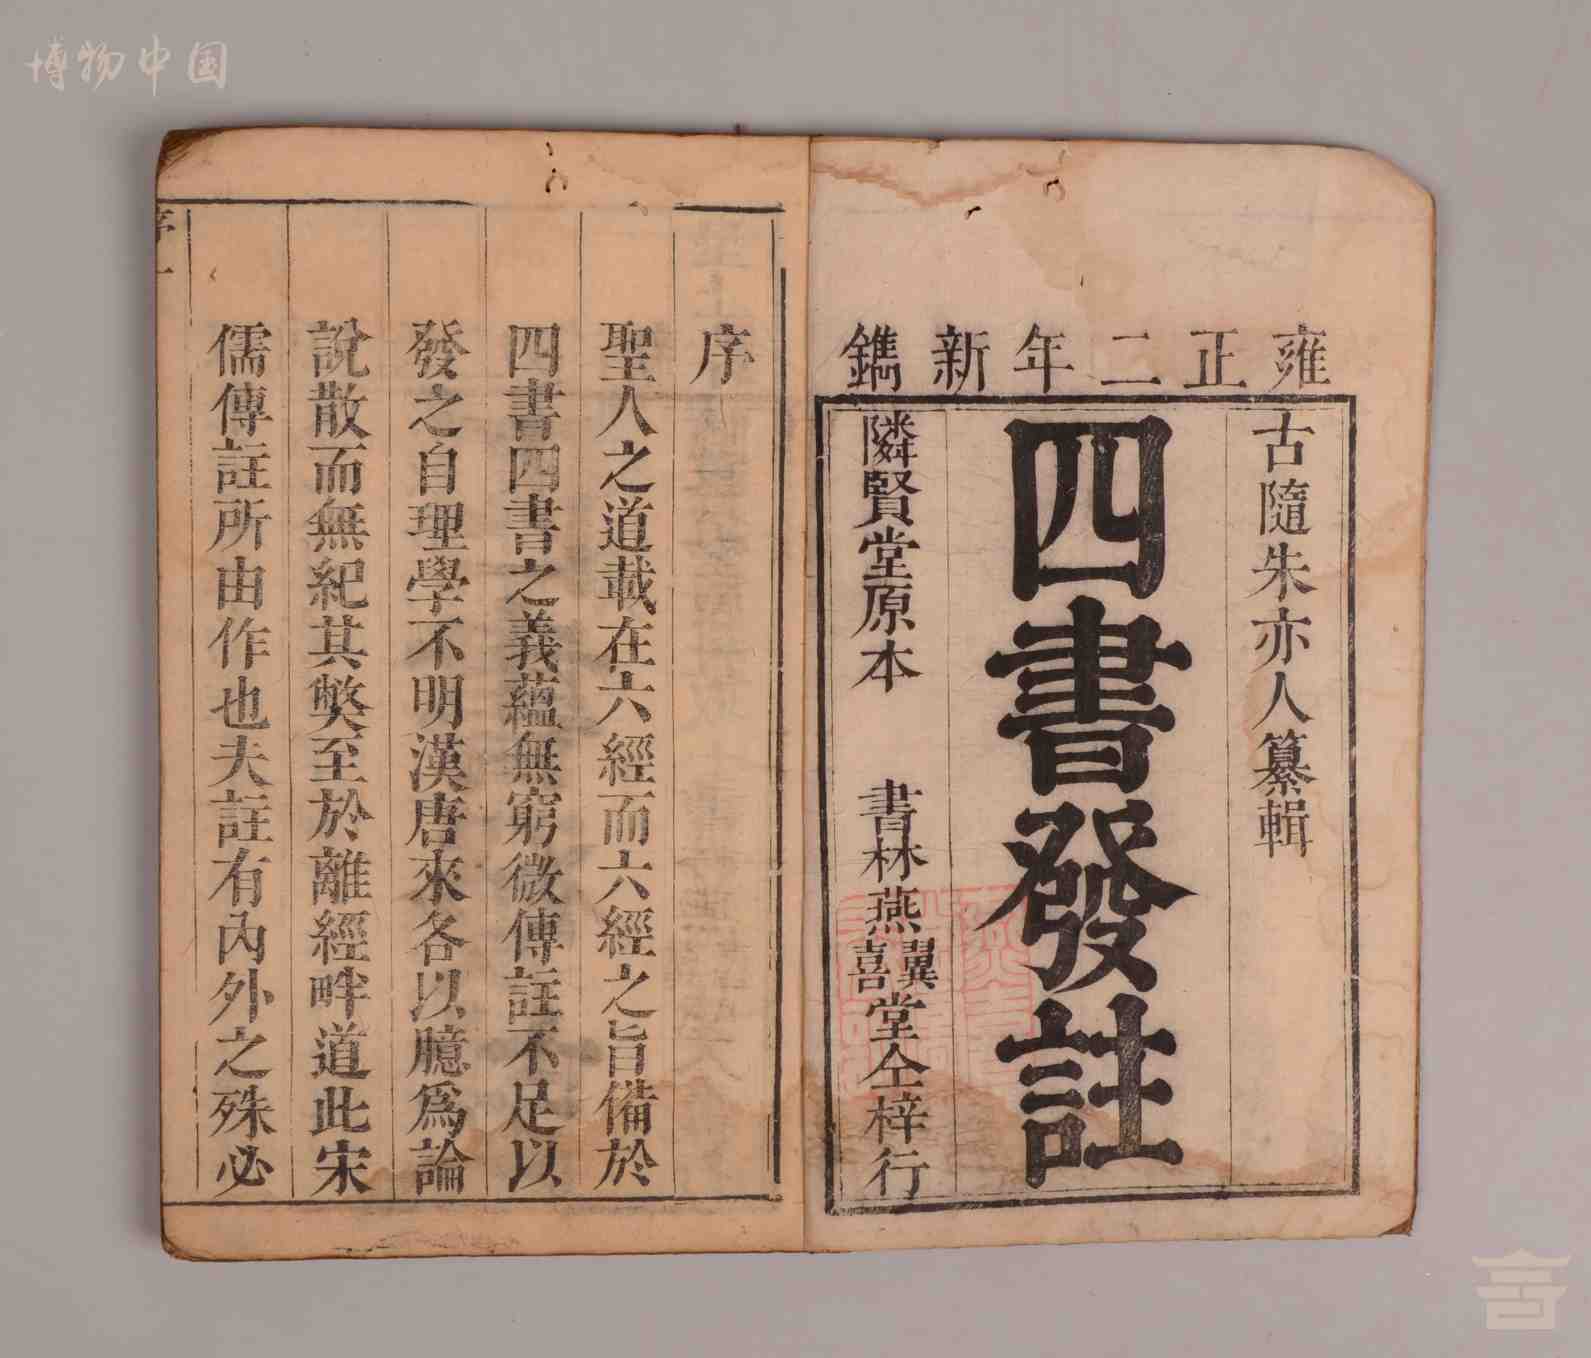 博物中国
雍正二年新鐫
古隨朱亦人纂輯
四書發註
隣賢堂原本　書林燕翼喜堂仝梓行
序
聖人之道載在六經而六經之旨備於
四書四書之義蘊無窮微傳註不足以
發之自理學不明漢唐來各以臆爲論
說散而無紀其獘至於離經畔道此宋
儒傳註所由作也夫註有內外之殊必
序一